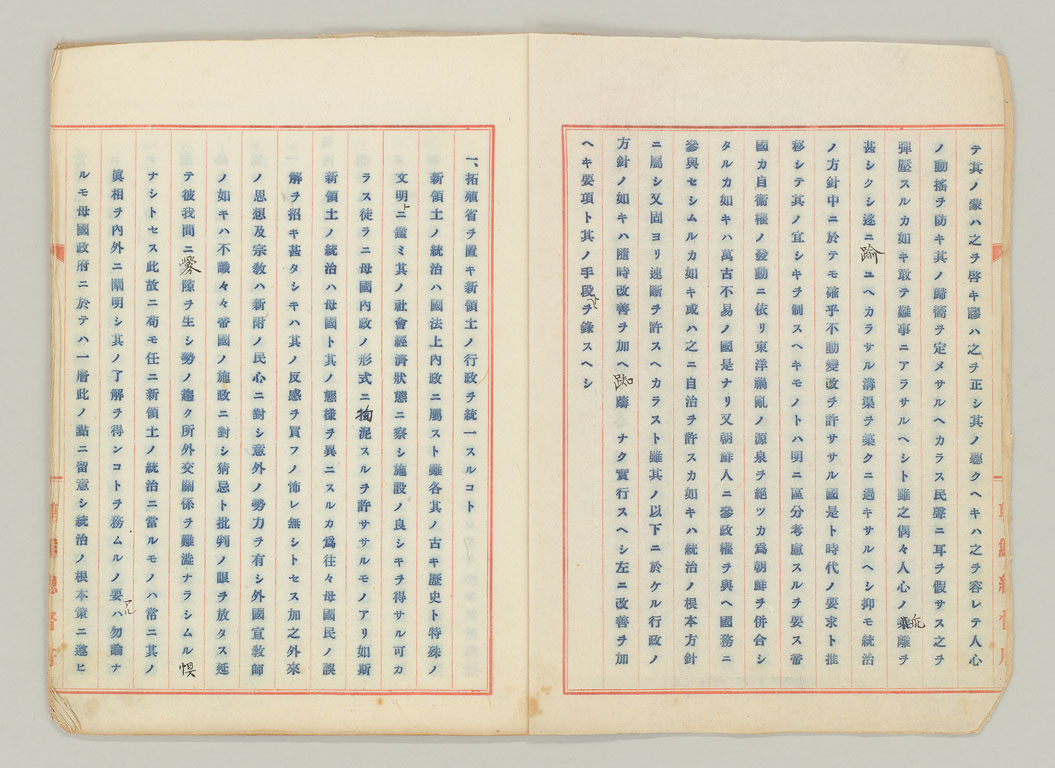 テ其ノ蒙ハ之ヲ啓キ謬ハ之ヲ正シ其ノ聽クヘキハ之ヲ容レテ人心
ノ動搖ヲ防キ其ノ歸嚮ヲ定メサルヘカラス民聲ニ耳ヲ假サス之ヲ
彈壓スルカ如キ敢テ難事ニアラサルヘシト雖之偶々人心ノ乖離ヲ
甚シクシ遂ニ踰ユヘカラサル溝渠ヲ築クニ過キサルヘシ抑モ統治
ノ方針中ニ於テモ確乎不動變改ヲ許ササル國是ト時代ノ要求ト推
移シテ其ノ宜シキヲ制スヘキモノトハ明ニ區分考慮スルヲ要ス帝
國カ自衞權ノ發動ニ依リ東洋禍亂ノ源泉ヲ絕ツカ爲朝鮮ヲ併合シ
タルカ如キハ萬古不易ノ國是ナリ又朝鮮人ニ參政權ヲ與ヘ國務ニ
參與セシムルカ如キ或ハ之ニ自治ヲ許スカ如キハ統治ノ根本方針
ニ屬シ又固ヨリ速斷ヲ許スヘカラスト雖其ノ以下ニ於ケル行政ノ
方針ノ如キハ隨時改善ヲ加ヘ踟躊ナク實行スヘシ左ニ改善ヲ加
ヘキ要項ト其ノ手段ヲ錄スヘシ
一、拓殖省ヲ置キ新領土ノ行政ヲ統一スルコト
新領土ノ統治ハ國法上內政ニ屬スト雖各其ノ古キ歷史ト特殊ノ
文明上ニ鑑ミ其ノ社會經濟狀態ニ察シ施設ノ良シキヲ得サル可カ
ラス徒ラニ母國內政ノ形式ニ拘泥スルヲ許ササルモノアリ如斯
新領土ノ統治ハ母國ト其ノ態樣ヲ異ニスルカ爲往々母國民ノ誤
解ヲ招キ甚タシキハ其ノ反感ヲ買フノ怖レ無シトセス加之外來
ノ思想及宗敎ハ新附ノ民心ニ對シ意外ノ勢力ヲ有シ外國宣敎師
ノ如キハ不識々々帝國ノ施政ニ對シ猜忌ト批判ノ眼ヲ放タス延
テ彼我間ニ釁隙ヲ生シ勢ノ趨ク所外交關係ヲ難澁ナラシムル惧
ナシトセス此故ニ苟モ任ニ新領土ノ統治ニ當ルモノハ常ニ其ノ
眞相ヲ內外ニ闡明シ其ノ了解ヲ得ンコトヲ務ムルノ要ハ勿論ナ
ルモ母國政府ニ於テハ一層此ノ點ニ留意シ統治ノ根本策ニ遂ヒ
朝鮮總督府